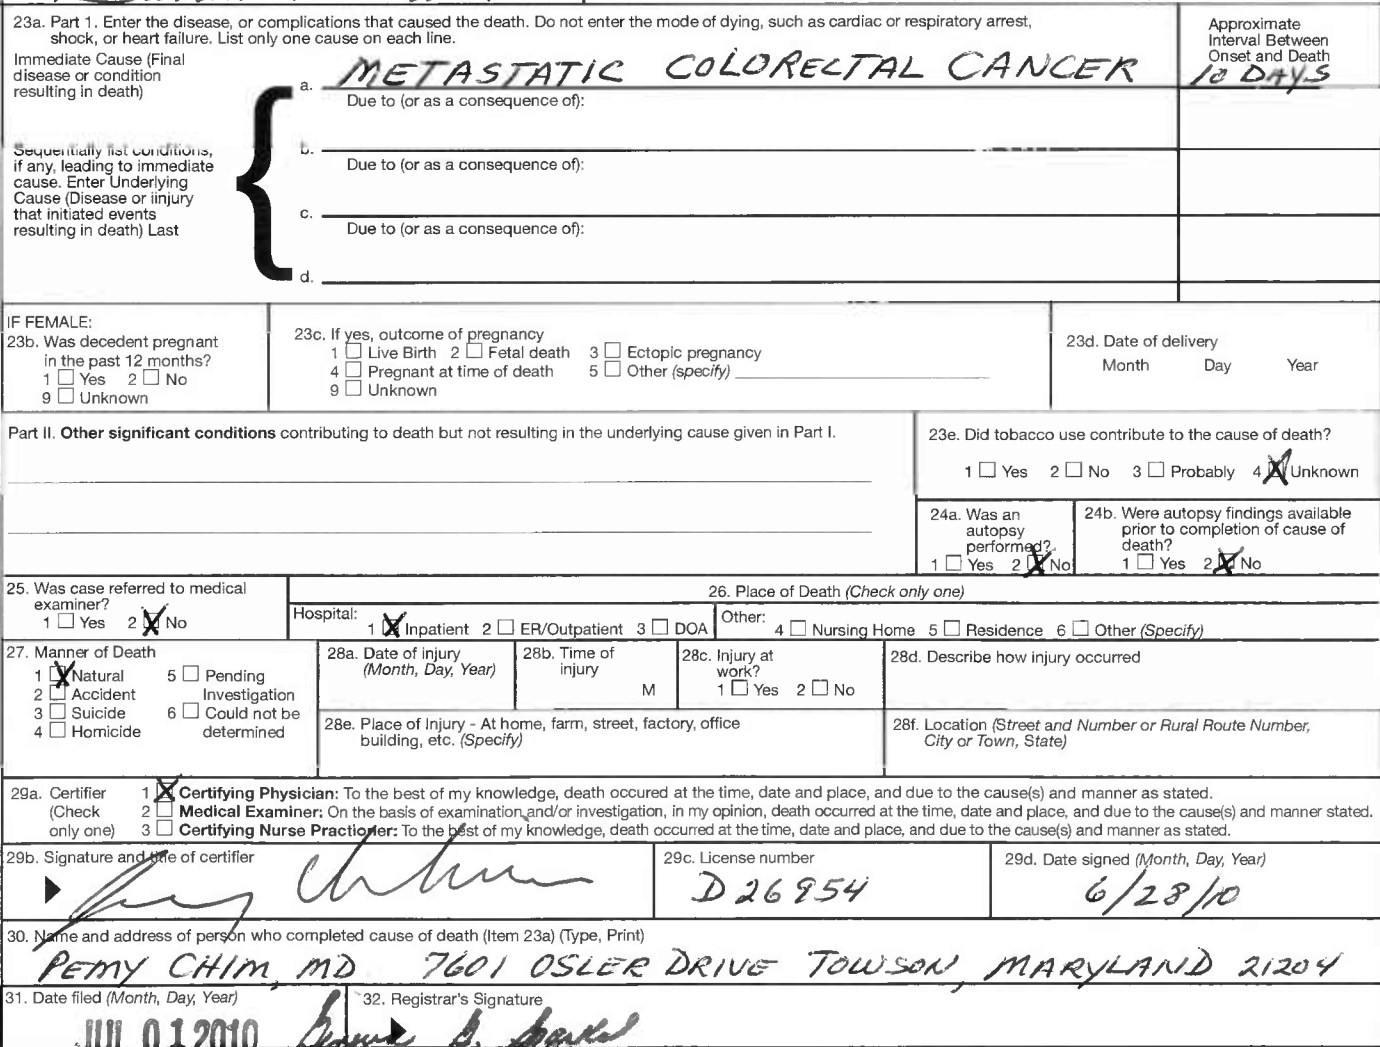 23a. Part 1. Enter the disease, or complications that caused the death. Do not enter the mode of dying, such as cardiac or respiratory arrest,
shock, or heart failure. List only one cause on each line.
Approximate
Interval Between
Onset and Death
Immediate Cause (Final
disease or condition
resulting in death)
a. METASTATIC COLORECTAL CANCER 10 DAYS
Due to (or as a consequence of):
Sequentially list conditions,
if any, leading to immediate
cause. Enter Underlying
Cause (Disease or iinjury
that initiated events
resulting in death) Last
b.
Due to (or as a consequence of):
c.
Due to (or as a consequence of):
d.
IF FEMALE:
23b. Was decedent pregnant
in the past 12 months?
1 ☐ Yes 2 ☐ No
9 ☐ Unknown
23c. If yes, outcome of pregnancy
1 ☐ Live Birth 2 ☐ Fetal death 3 ☐ Ectopic pregnancy
4 ☐ Pregnant at time of death 5 ☐ Other (specify)
9 ☐ Unknown
23d. Date of delivery
Month Day Year
Part II. Other significant conditions contributing to death but not resulting in the underlying cause given in Part I.
23e. Did tobacco use contribute to the cause of death?
1 ☐ Yes 2 ☐ No 3 ☐ Probably 4 ☒ Unknown
24a. Was an
autopsy
performed?
1 ☐ Yes 2 ☒ No
24b. Were autopsy findings available
prior to completion of cause of
death?
1 ☐ Yes 2 ☒ No
25. Was case referred to medical
examiner?
1 ☐ Yes 2 ☒ No
26. Place of Death (Check only one)
Hospital: 1 ☒ Inpatient 2 ☐ ER/Outpatient 3 ☐ DOA
Other: 4 ☐ Nursing Home 5 ☐ Residence 6 ☐ Other (Specify)
27. Manner of Death
1 ☒ Natural 5 ☐ Pending
2 ☐ Accident Investigation
3 ☐ Suicide 6 ☐ Could not be
4 ☐ Homicide determined
28a. Date of injury
(Month, Day, Year)
28b. Time of
injury
M
28c. Injury at
work?
1 ☐ Yes 2 ☐ No
28d. Describe how injury occurred
28e. Place of Injury - At home, farm, street, factory, office
building, etc. (Specify)
28f. Location (Street and Number or Rural Route Number,
City or Town, State)
29a. Certifier
(Check
only one)
1 ☒ Certifying Physician: To the best of my knowledge, death occured at the time, date and place, and due to the cause(s) and manner as stated.
2 ☐ Medical Examiner: On the basis of examination and/or investigation, in my opinion, death occurred at the time, date and place, and due to the cause(s) and manner stated.
3 ☐ Certifying Nurse Practioner: To the best of my knowledge, death occurred at the time, date and place, and due to the cause(s) and manner as stated.
29b. Signature and title of certifier
29c. License number
D 26954
29d. Date signed (Month, Day, Year)
6/28/10
30. Name and address of person who completed cause of death (Item 23a) (Type, Print)
PEMY CHIM, MD 7601 OSLER DRIVE TOWSON, MARYLAND 21204
31. Date filed (Month, Day, Year)
JUL 01 2010
32. Registrar's Signature